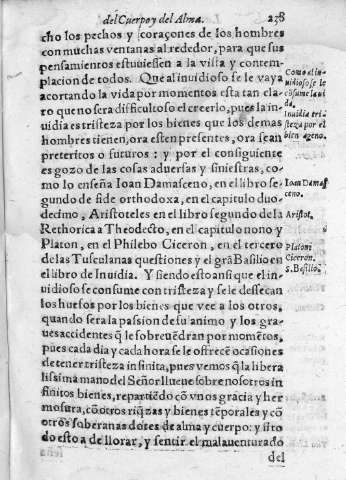 del Cuerpo y del Alma. 238
cho los pechos y coraçones de los hombres
con muchas ventanas al rededor, para que sus
pensamientos estuuiessen a la vista y contem-
placion de todos. Que al inuidioso se le vaya
acortando la vida por momentos esta tan cla-
ro que no sera difficultoso el creerlo, pues la in-
uidia es tristeza por los bienes que los demas
hombres tienen, ora esten presentes, ora sean
preteritos o futuros: y por el consiguiente
es gozo de las cosas aduersas y siniestras, co-
mo lo enseña Ioan Damasceno, en el libro se-
gundo de fide orthodoxa, en el capitulo duo-
decimo, Aristoteles en el libro segundo de la
Rethorica a Theodecto, en el capitulo nono y
Platon, en el Philebo Ciceron, en el tercero
de las Tusculanas questiones y el grã Basilio en
el libro de Inuidia. Y siendo esto ansi que el in-
uidioso se consume con tristeza y se le dessecan
los huesos por los bienes que vee a los otros,
quando sera la passion de su animo y los gra-
ues accidentes q̃ le sobreuẽdran por momẽtos,
pues cada dia y cada hora se le ofrecẽ ocasiones
de tener tristeza infinita, pues vemos q̃ la libera
lissima mano del Señor llueue sobre nosotros in
finitos bienes, repartiẽdo cõ vnos gracia y her
mosura, cõ otros riq̃zas y bienes tẽporales y cõ
otros soberanas dotes de alma y cuerpo: y siẽ
do esto a de llorar, y sentir el malauenturado
del
Como al in-
uidioso se le
cõsume la ui
da.
Inuidia tri-
steza por el
bien ageno.
Ioan Damas
ceno.
Aristot.
Platon.
Ciceron.
S. Basilio.